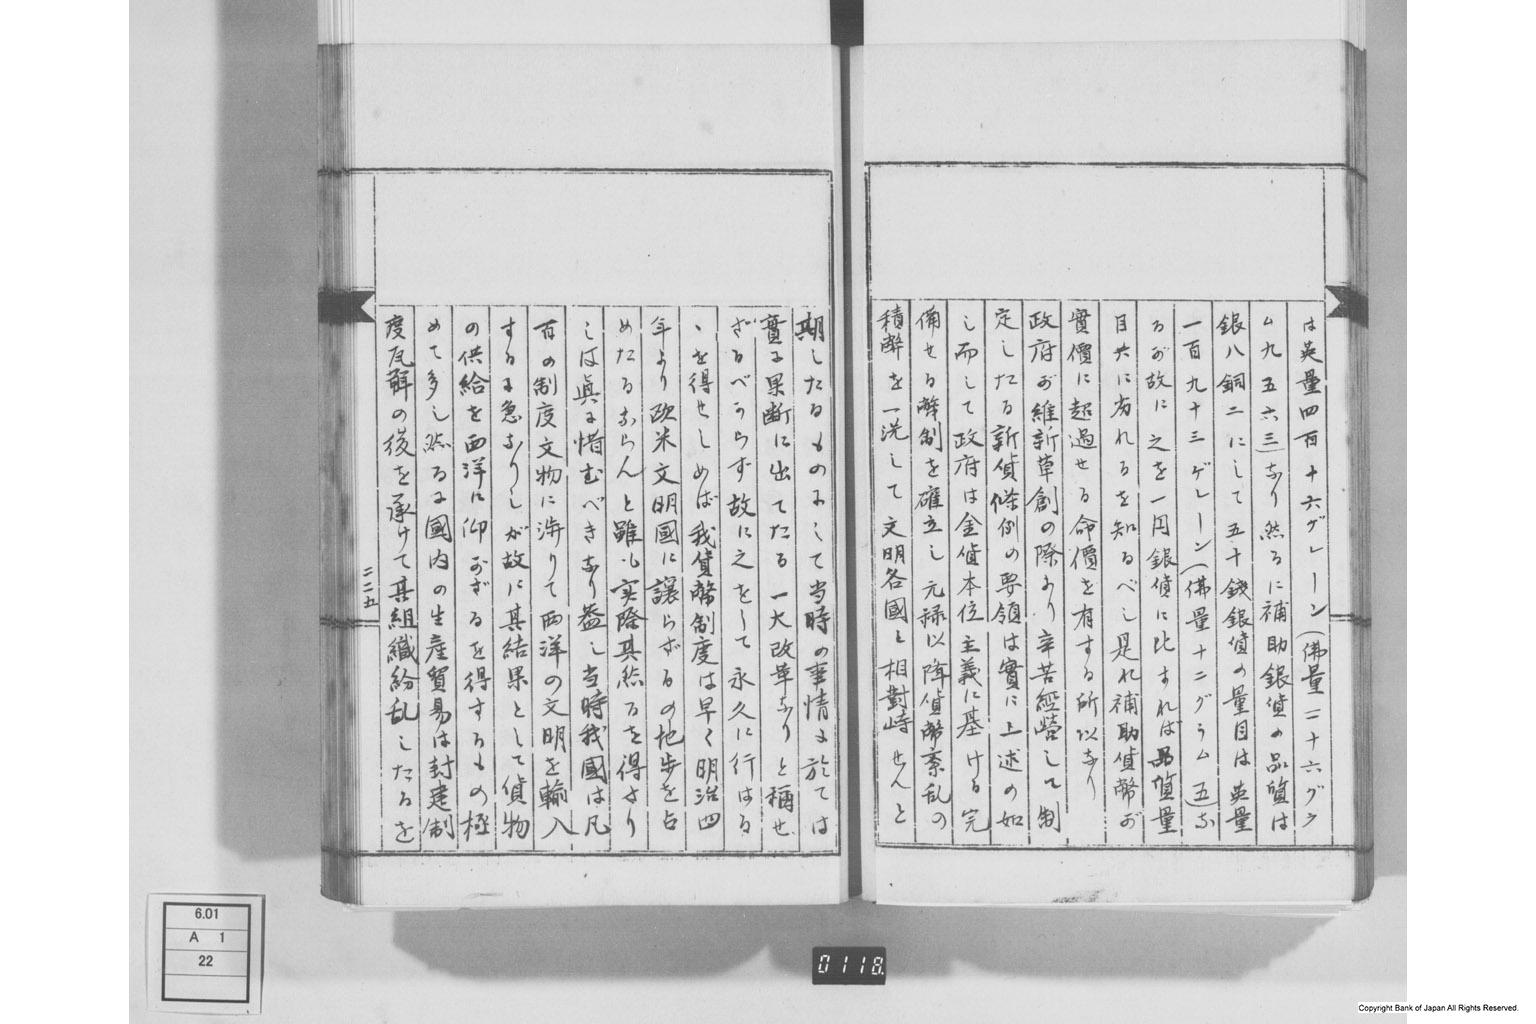 は英量四百十六グレーン(佛量二十六グラ
ム九五六三)なり然るに補助銀貨の品質は
銀八銅二にして五十錢銀貨の量目は英量
一百九十三グレーン(佛量十二グラム五)な
るが故に之を一円銀貨に比すれば品質量
目共に劣れるを知るべし是れ補助貨幣が
實價に超過せる命價を有する所以なり
政府が維新草創の際より辛苦經營して制
定したる新貨條例の要領は實に上述の如
し而して政府は金貨本位主義に基ける完
備せる幣制を確立し元禄以降貨幣紊乱の
積弊を一洗して文明各國と相對峙せんと
期したるものにして当時の事情に於ては
實に果断に出てたる一大改革なりと稱せ
ざるべからず故に之をして永久に行はる
ヽを得せしめば我貨幣制度は早く明治四
年より欧米文明國に讓らざるの地歩を占
めたるならんと雖も実際其然るを得ざり
しは眞に惜むべきなり蓋し当時我國は凡
百の制度文物に渉りて西洋の文明を輸入
するに急なりしが故に其結果として貨物
の供給を西洋に仰がざるを得ずるもの極
めて多し然るに國内の生産貿易は封建制
度瓦解の後を承けて其組織紛乱したるを
二二五
6.01
A 1
22
0118.
Copyright Bank of Japan All Rights Reserved.